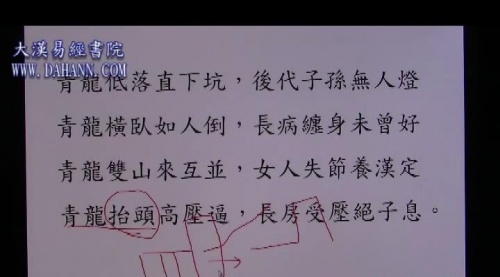 大漢易經書院
WWW.DAHANN.COM
青龍低落直下坑，後代子孫無人燈
青龍橫臥如人倒，長病纏身未曾好
青龍雙山來互並，女人失節養漢定
青龍抬頭高壓逼，長房受壓絕子息。